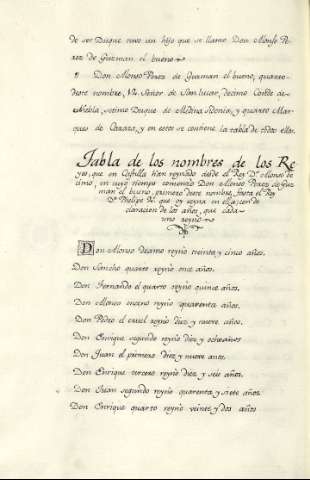 de ser Duque tuvo un hijo que se llamo Don Alonso Pe-
rez de Guzman el bueno
8 Don Alonso Perez de Guzman el bueno, quarto
deste nombre, Sr. Señor de San lucar, decimo Conde de
Niebla, setimo Duque de Medina Sidonia, y quarto Mar-
ques de Cazaza, y en esto se contiene la tabla de todos ellos.
Tabla de los nombres de los Re
yes, que en Castilla han reynado desde el Rey D. Alonso de
cimo, en cuyo tiempo comenzo Don Alonso Perez de Guz
man el bueno, primero deste nombre, hasta el Rey
D. Phelipe V. que oy reyna en ella; con de
claracion de los años, que cada
uno reyno
Don Alonso decimo reynò treinta y cinco años.
Don Sancho quarto reynò once años.
Don Fernando el quarto reynò quince años.
Don Alonso onceno reynò quarenta años.
Don Pedro el cruel reynò diez y nueve años.
Don Enrique segundo reynò diez y ocho años
Don Juan el primero diez y nueve años.
Don Enrique tercero reynò diez y seis años.
Don Juan segundo reynò quarenta y siete años
Don Enrique quarto reynò veinte y dos años